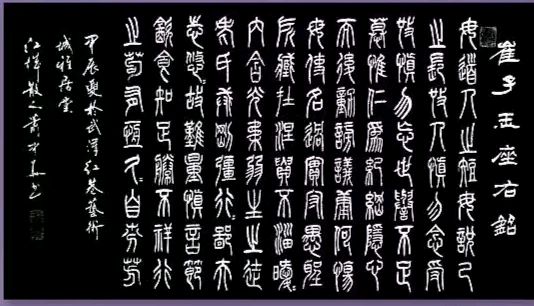 崔子玉座右銘
毋道人之短毋說己
之長施人慎勿念受
施慎勿忘世譽不足
慕惟仁為紀綱隱心
而後動謗議庸何傷
毋使名過實守愚聖
所臧在涅貴不淄曖〻
內含光柔弱生之徒
老氏誡剛彊行〻鄙夫
志悠〻故難量慎言節
飲食知足勝不祥行
之苟有恆久〻自芬芳
甲辰夏於武漢紅巷藝術
城雅居堂